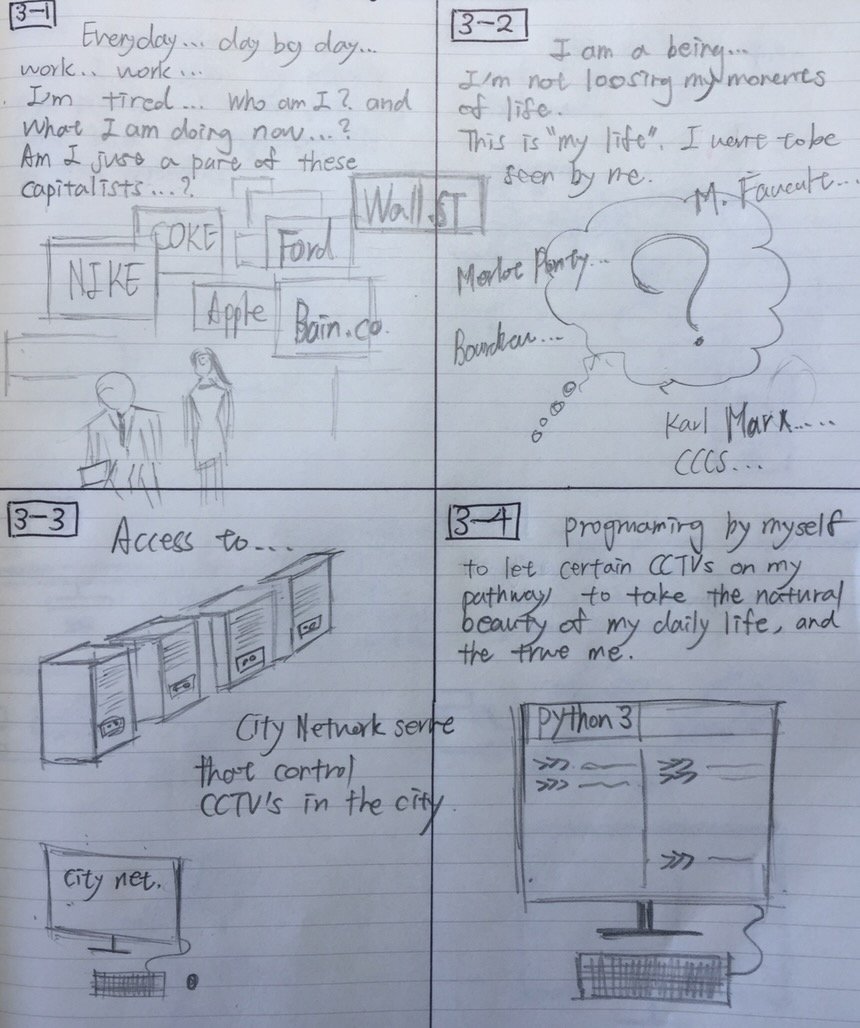 3-1
Everyday... day by day...
work.. work...
I'm tired... who am I? and
what I am doing now...?
Am I just a part of these
capitalists...?
Wall.ST
COKE
Ford
NIKE
Apple
Bain.co.
3-2
I am a being...
I'm not loosing my moments
of life.
This is "my life". I want to be
seen by me.
M. Foucult...
Merlot Ponty...
?
Bourdeu...
Karl Marx.....
CCCS...
3-3
Access to...
City Network serve
that control
CCTV's in the city
City net.
3-4
progmaming by myself
to let certain CCTVs on my
pathway to take the natural
beauty of my daily life, and
the true me.
Python 3
>>>
>>>
>>>
>>>
>>>